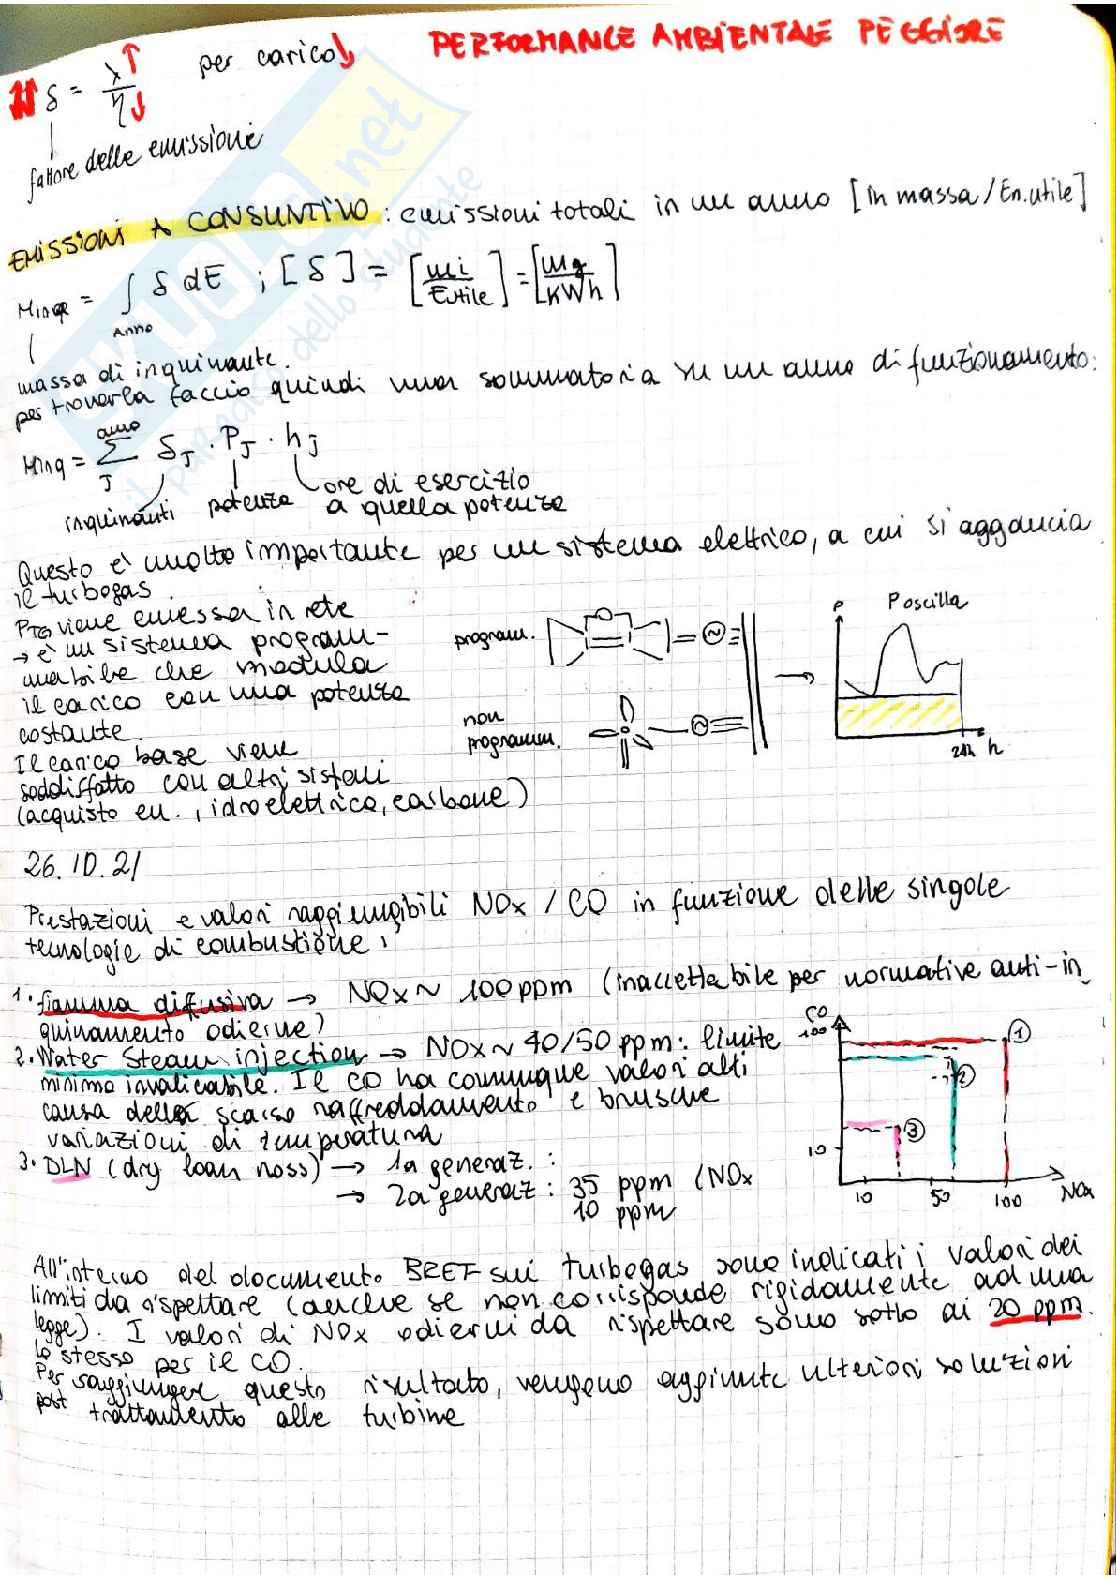 δ = λ↑ / η↓ per carico↓ PERFORMANCE AMBIENTALE PEGGIORE
fattore delle emissione
EMISSIONI A CONSUNTIVO : emissioni totali in un anno [in massa/En.utile]
Minq = ∫ δ dE ; [δ] = [mi / Eutile] = [mg / KWh]
Anno
massa di inquinante.
per trovarla faccio quindi una sommatoria su un anno di funzionamento:
anno
Minq = Σ δJ · PJ · hJ
J
inquinanti potenza ore di esercizio
a quella potenza
Questo è molto importante per un sistema elettrico, a cui si aggancia
il turbogas.
PTG viene emessa in rete
→ è un sistema program-
mabile che modula
il carico con una potenza
costante.
Il carico base viene
soddisfatto con altri sistemi
(acquisto en., idroelettrico, carbone)
program.
non
programm.
P
P oscilla
24h h
26.10.21
Prestazioni e valori raggiungibili NOx / CO in funzione delle singole
tecnologie di combustione:
1. fiamma diffusiva → NOx ~ 100 ppm (inaccettabile per normative anti-in
quinamento odierne)
2. Water Steam injection → NOx ~ 40/50 ppm: limite
minimo invalicabile. Il CO ha comunque valori alti
causa dello scarso raffreddamento e brusche
variazioni di temperatura
3. DLN (dry loan noss) → 1a generaz. :
→ 2a generaz : 35 ppm (NOx
10 ppm
CO
100
10
10 50 100 NOx
1
2
3
All'interno del documento BREF sui turbogas sono indicati i valori dei
limiti da rispettare (anche se non corrisponde rigidamente ad una
legge). I valori di NOx odierni da rispettare sono sotto ai 20 ppm.
Lo stesso per il CO.
Per raggiungere questo risultato, vengono aggiunte ulteriori soluzioni
post trattamento alle turbine
skuola.net
il paradiso dello studente